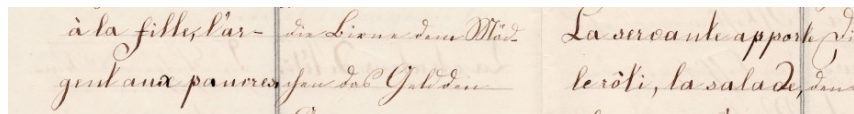 à la fille, l'ar-
gent aux pauvres,
die Birne dem Mäd-
chen das Geld den
La servante apporte
le rôti, la salade,
Di
den